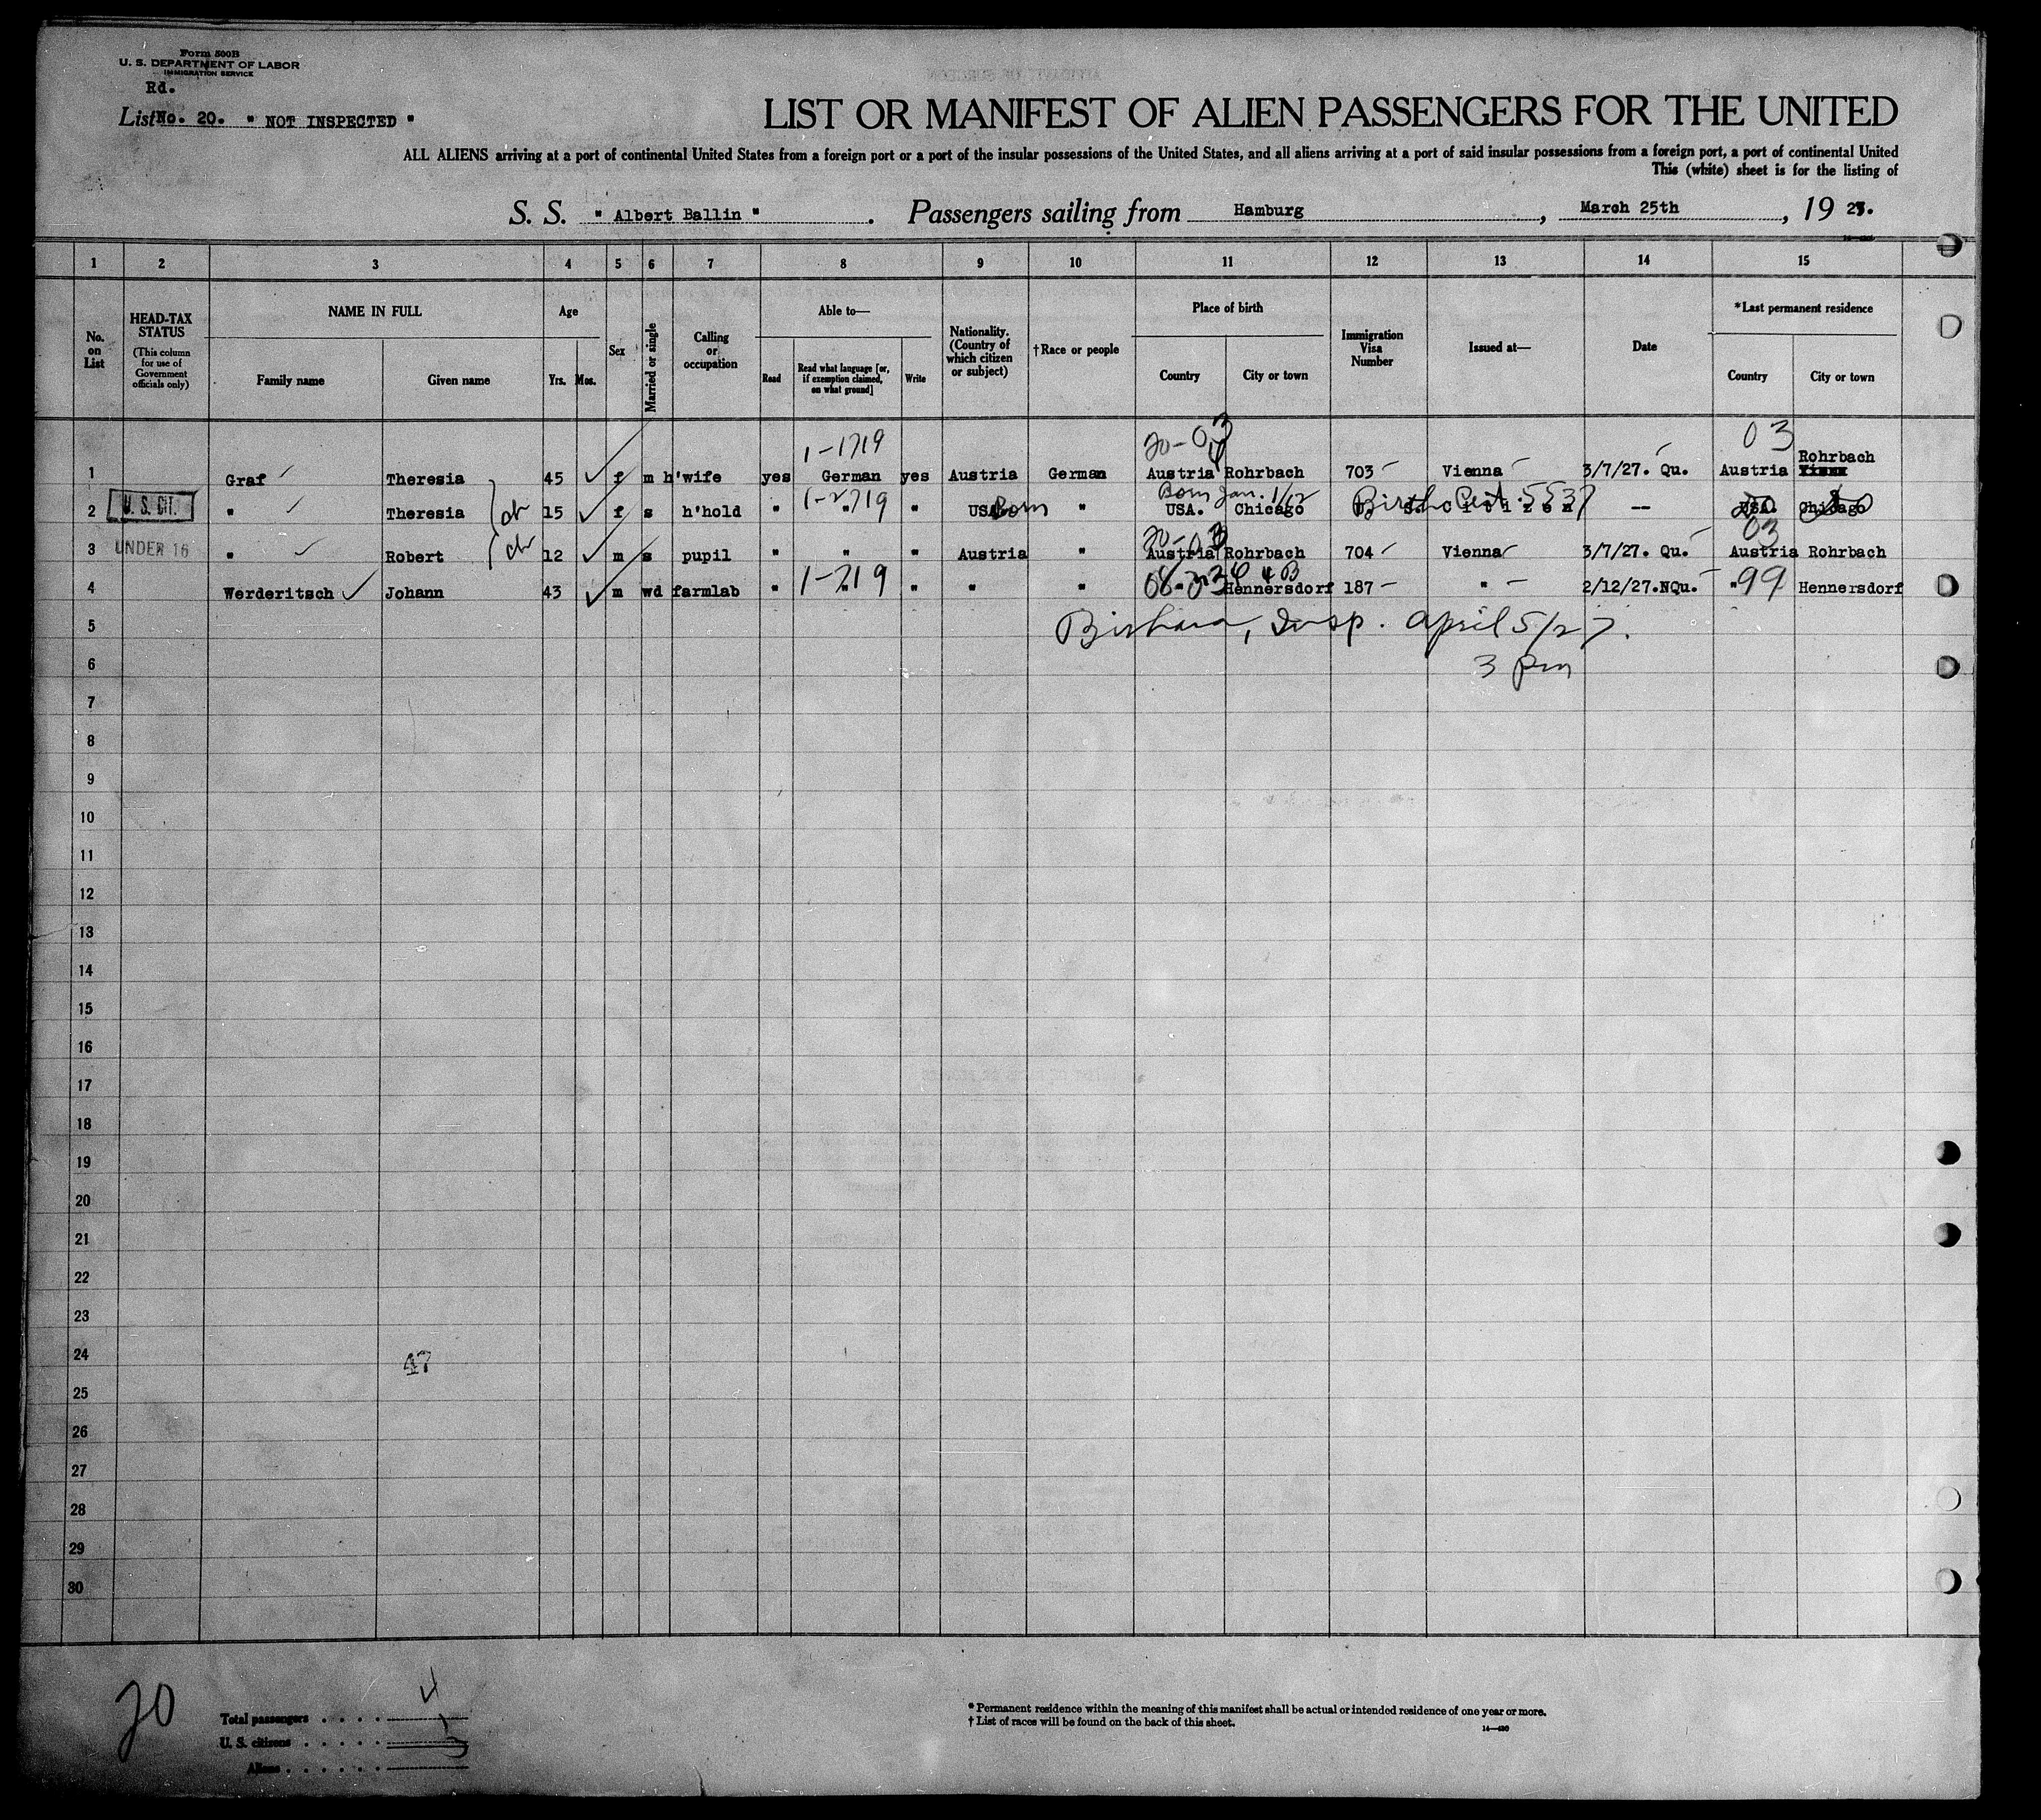 Form 500B
U. S. DEPARTMENT OF LABOR
IMMIGRATION SERVICE
Rd.
List No. 20. " NOT INSPECTED "
LIST OR MANIFEST OF ALIEN PASSENGERS FOR THE UNITED
ALL ALIENS arriving at a port of continental United States from a foreign port or a port of the insular possessions of the United States, and all aliens arriving at a port of said insular possessions from a foreign port, a port of continental United
This (white) sheet is for the listing of
S. S. " Albert Ballin " . Passengers sailing from Hamburg , March 25th , 19 27.
1 2 3 4 5 6 7 8 9 10 11 12 13 14 15
No. on List
HEAD-TAX STATUS (This column for use of Government officials only)
NAME IN FULL
Family name Given name
Age
Yrs. Mos.
Sex
Married or single
Calling or occupation
Able to—
Read Read what language [or, if exemption claimed, on what ground] Write
Nationality. (Country of which citizen or subject)
†Race or people
Place of birth
Country City or town
Immigration Visa Number
Issued at—
Date
*Last permanent residence
Country City or town
1-1719 20-03 03
1 Graf Theresia 45 f m h'wife yes German yes Austria German Austria Rohrbach 703 Vienna 3/7/27. Qu. Austria Rohrbach
Born Jan. 1/12 Birth Cert. 5537
2 U. S. CIT. " Theresia ch 15 f s h'hold " " " USA Born " USA. Chicago U. S. Citizen -- USA. Chicago
20-03 03
3 UNDER 16 " Robert ch 12 m s pupil " " " Austria " Austria Rohrbach 704 Vienna 3/7/27. Qu. Austria Rohrbach
4 Werderitsch Johann 43 m wd farmlab " 1-719 " " " " Hennersdorf 187 " 2/12/27.NQu. " 99 Hennersdorf
5 Insp. April 5/27.
6 3 pm
7
8
9
10
11
12
13
14
15
16
17
18
19
20
21
22
23
24 47
25
26
27
28
29
30
20
Total passengers . . . . 4
U. S. citizens . . . . . 1
Aliens . . . . . . 3
* Permanent residence within the meaning of this manifest shall be actual or intended residence of one year or more.
† List of races will be found on the back of this sheet.
14—430